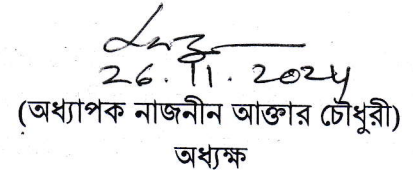 26.11.2024
(অধ্যাপক নাজনীন আক্তার চৌধুরী)
অধ্যক্ষ